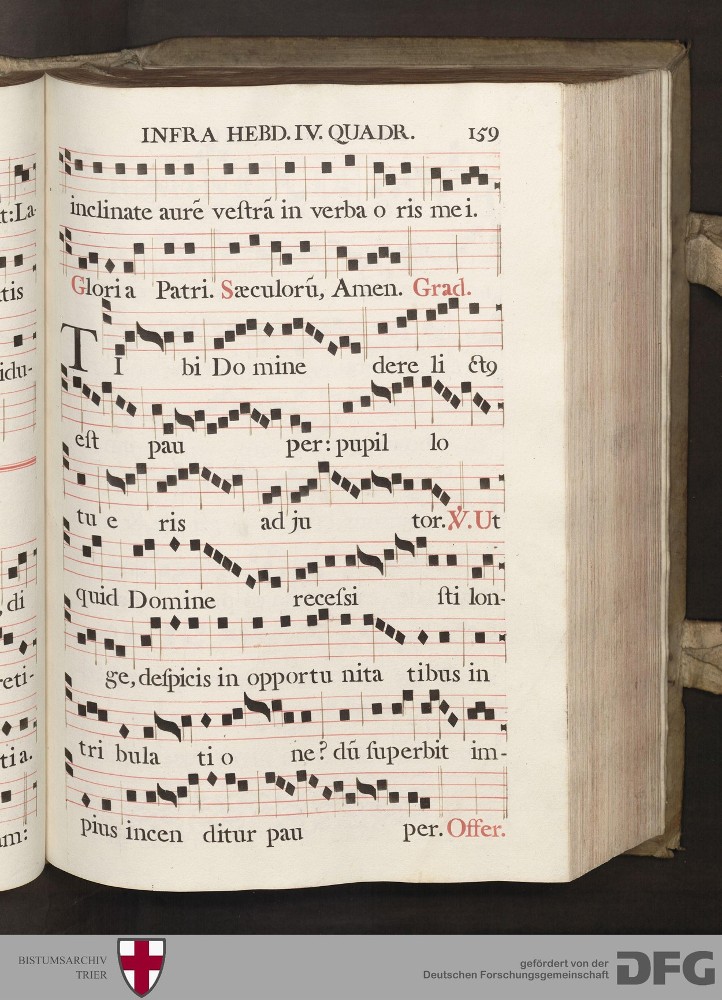 INFRA HEBD. IV. QUADR. 159
inclinate aurẽ veſtrã in verba o ris mei.
Gloria Patri. Sæculorũ, Amen. Grad.
TI bi Domine dere li ctꝯ
eſt pau per: pupil lo
tu e ris ad ju tor. ℣. Ut
quid Domine receſsi ſti lon-
ge, deſpicis in opportu nita tibus in
tri bula ti o ne? dũ ſuperbit im-
pius incen ditur pau per. Offer.
t: La-
tis
idu-
, di
reti-
tia.
am:
BISTUMSARCHIV
TRIER
gefördert von der
Deutschen Forschungsgemeinschaft
DFG